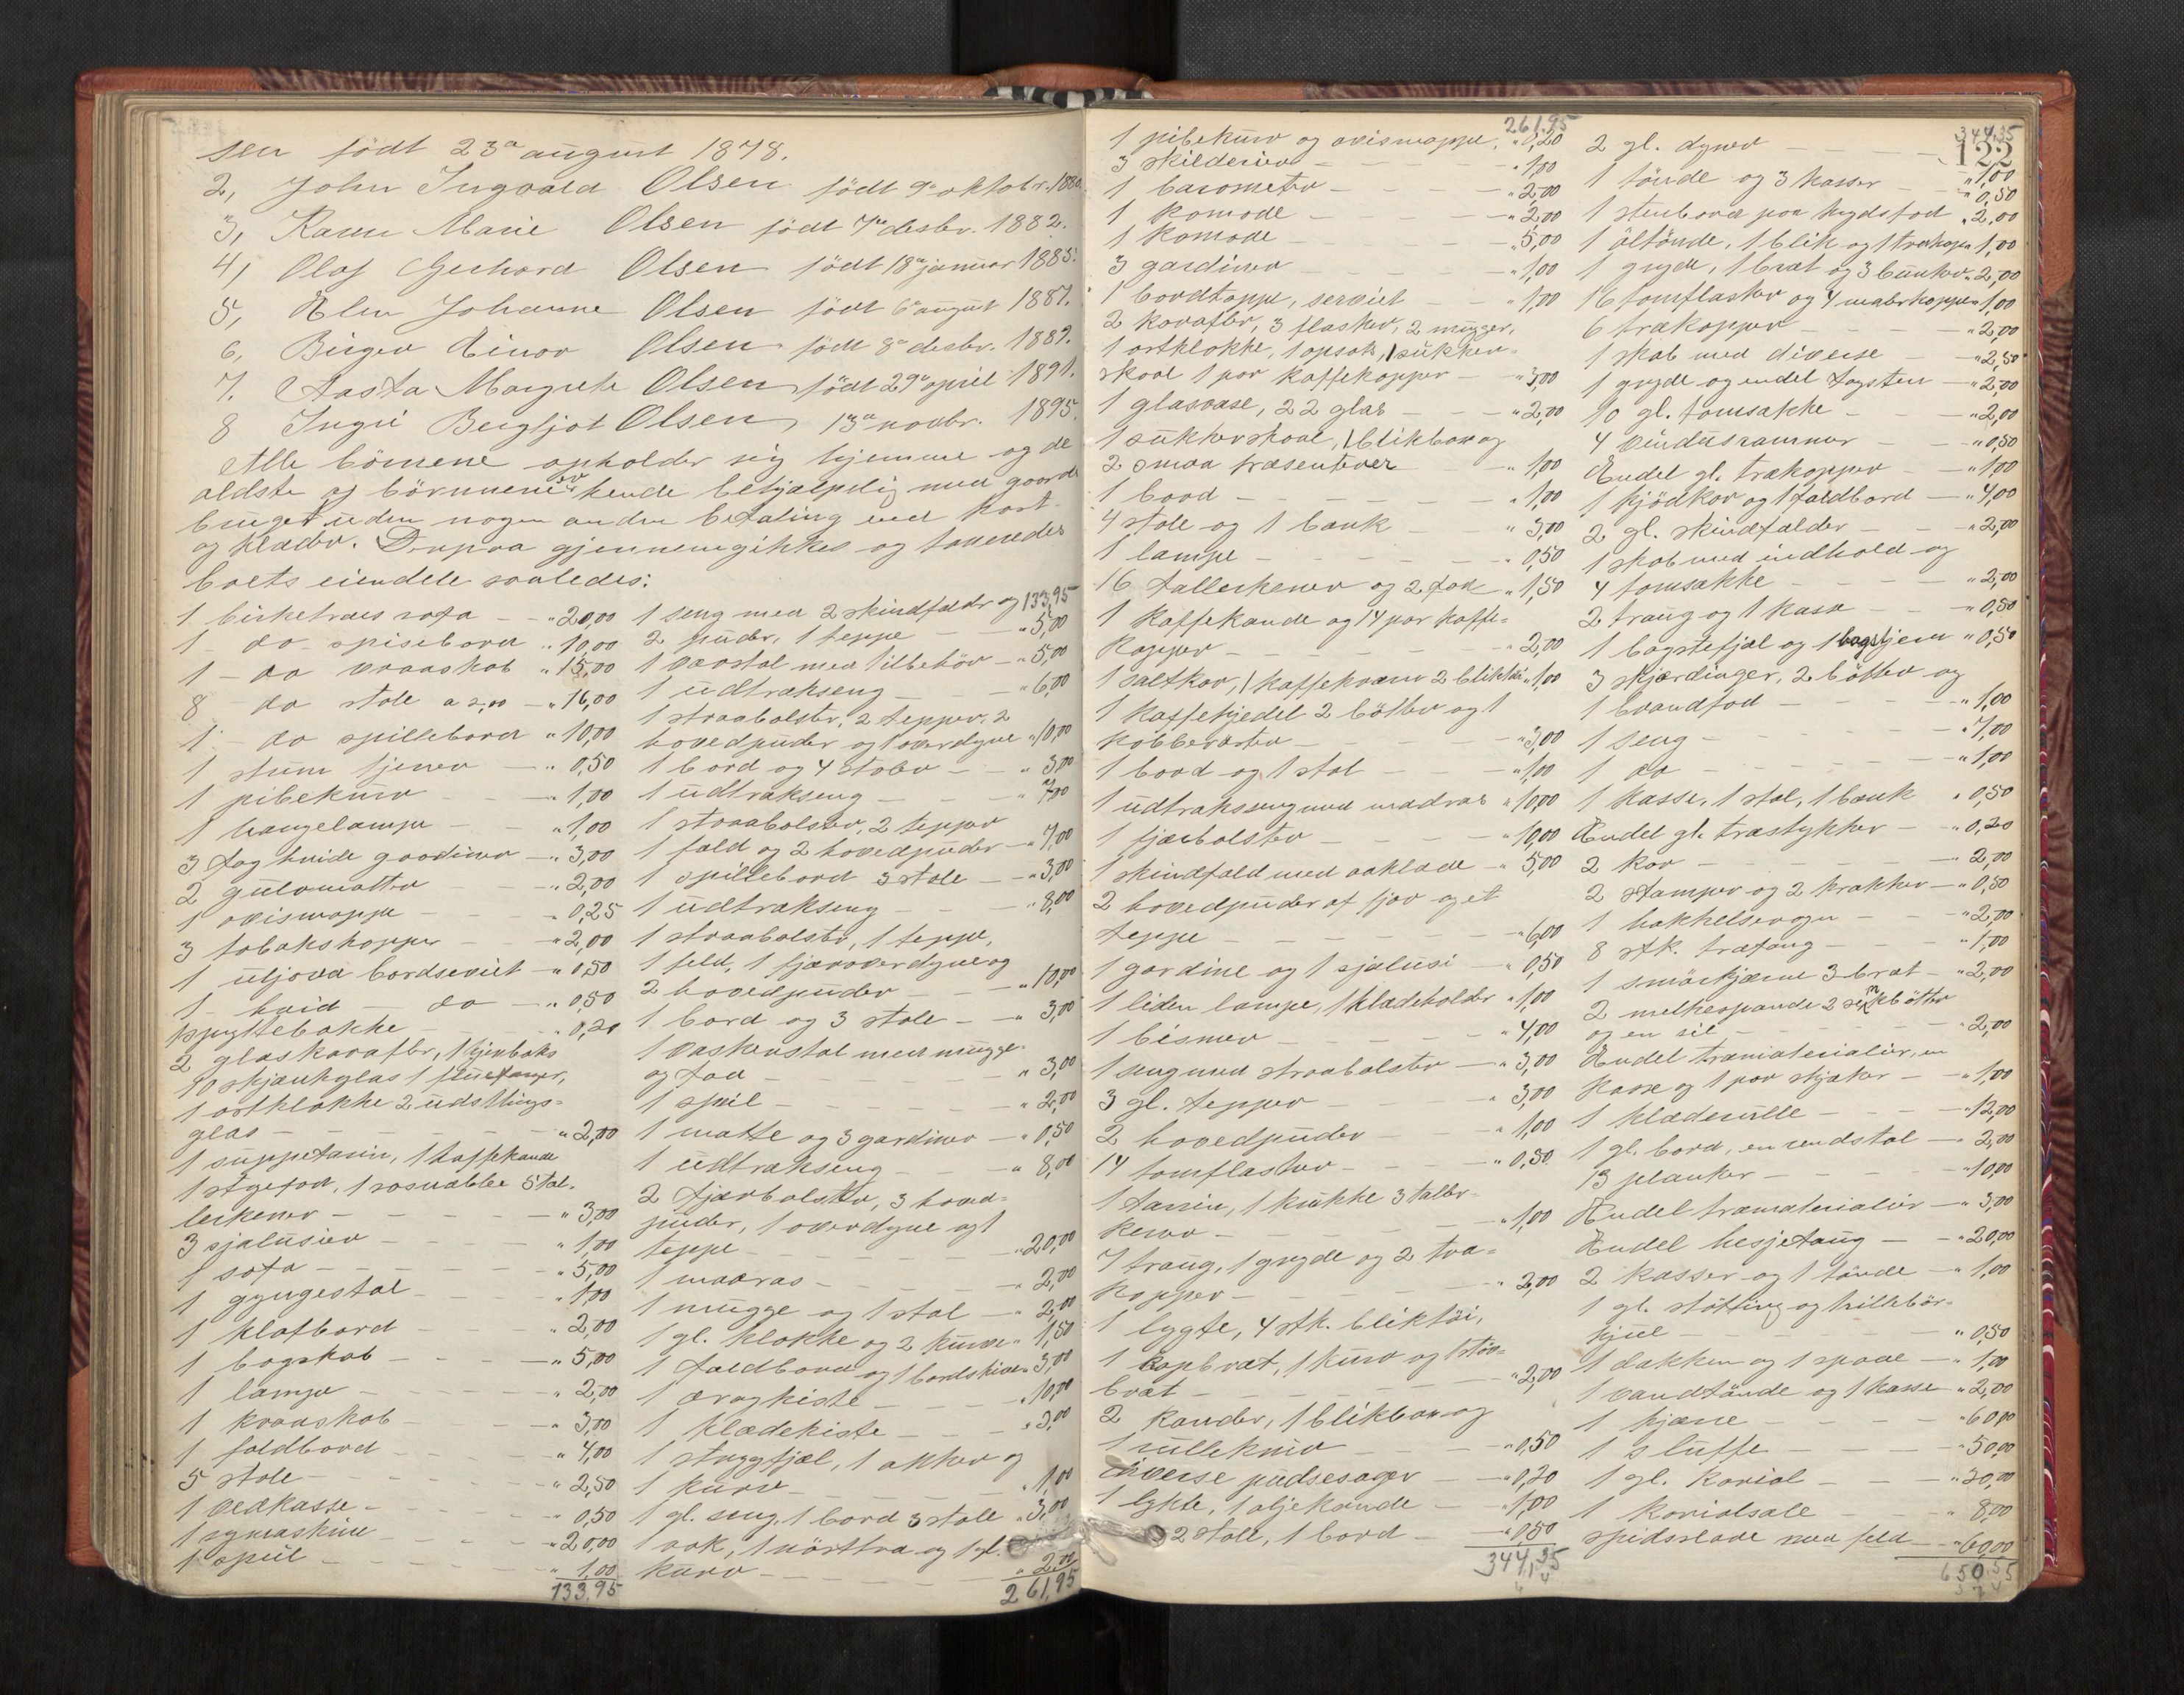 sen födt 23de august 1878.
2, John Ingvald Olsen födt 9de oktobr. 1880
3, Karen Marie Olsen födt 7de desbr. 1882.
4, Olaf Gerhard Olsen födt 18de januar 1885.
5, Elen Johanne Olsen födt 6te august 1887.
6, Birger Einar Olsen födt 8de desbr. 1889.
7. Aasta Margrete Olsen födt 29de april 1891.
8 Ingri Bergljot Olsen 13de novbr. 1895.
Alle börnene opholder sig hjemme og de
ældste af börnene er hende behjælpelig med gaards
bruget uden nogen anden betaling end kost
og klæder. Derpaa gjennemgikkes og taxeredes
boets eiendele saaledes:
1 birketræes sofa - - " 20,00
1 - do - spisebord " 10,00
1 - do vraaskab " 15,00
8 do stole a 2,00 - " 16,00
1 - do spillebord " 10,00
1 stum tjener - " 0,50
1 pibekurv - - " 1,00
1 hængelampe - " 1,00
3 fag hvide gardiner - " 3,00
2 gulvmatter - " 2,00
1 avismappe - " 0,25
3 tobakskopper - " 2,00
1 uljovd bordserviet - " 0,50
1 - hvid - do - " 0,50
1 spyttebakke - " 0,20
2 glaskarafler, 1 hjenbaks
10 skjænkglas 1 fluefanger,
1 ostklokke 2 udstillings-
glas - - - " 2,00
1 suppetarin, 1 kaffekande
1 stgefad, 1 sosnabbe 5 tal-
lerkener - - - " 3,00
3 sjalusier - - " 1,00
1 sofa - - - " 5,00
1 gyngestol - - " 1,00
1 klafbord - - " 2,00
1 bogskab - - " 5,00
1 lampe - - " 2,00
1 kraaskab - - " 3,00
1 foldbord - - " 4,00
5 stole - - " 2,50
1 vedkasse - - " 0,50
1 symaskine - - " 20,00
1 speil - - " 1,00
133,95
133,95
1 seng med 2 skindfelder og
2 puder, 1 teppe - " 5,00
1 vævstol med tilbehör - " 5,00
1 udtrækseng - - " 6,00
1 straabolster, 2 tepper, 2
hovedpuder og 1 overdyne " 10,00
1 bord og 4 stoler - " 3,00
1 udtrækseng - - " 7,00
1 straabolster, 2 tepper
1 fæld og 2 hovedpuder - " 7,00
1 spillebord 3 stole - " 3,00
1 udtrækseng - " 8,00
1 straabolster, 1 teppe,
1 feld, 1 fjæroverdyne og
2 hovedpuder - " 10,00
1 bord og 3 stole - " 3,00
1 vaskerstol med mugge-
og fad - - " 3,00
1 speil - - " 2,00
1 matte og 3 gardiner - " 0,50
1 udtrækseng - " 8,00
2 fjærbolster, 3 hoved-
puder, 1 overdyne og 1
teppe - - " 20,00
1 madras - - " 2,00
1 mugge og 1 stol - " 2,00
1 gl. klokke og 2 kurve " 1,50
1 foldbord og 1 bordskive " 3,00
1 dragkiste - - " 10,00
1 klædekiste - - " 3,00
1 stryggfjæl, 1 akker og
1 kurv - - " 1,00
1 gl. seng, 1 bord 3 stole " 3,00
1 rok, 1 nörttra og 1 gl.
kurv - - - " 2,00
261,95
261,95
1 pibekurv og avismappe, " 0,20
3 skilderier - - " 1,00
1 barometer - - " 2,00
1 komode - - " 2,00
1 komode - - " 5,00
3 gardiner - - " 1,00
1 bordtoppe, serviet - " 1,00
2 karafler, 3 flasker, 2 mugger,
1 ostklokke, 1 opsats, 1 sukker-
skaal 1 par kaffekopper - " 3,00
1 glasvase, 22 glas - " 2,00
1 sukkerskaal, 1 blikbox og
2 smaa præsenterer - " 1,00
1 bord - - " 1,00
4 stole og 1 bænk - " 3,00
1 lampe - - " 0,50
16 tallerkener og 2 fade " 1,50
1 kaffekande og 14 par kaffe-
kopper - - " 2,00
1 saltkar, 1 kaffekværn 2 bliktöi " 1,00
1 kaffekjedel 2 bötter og 1
kobberöster - - " 3,00
1 bord og 1 stol - " 1,00
1 udtrækseng med madras " 10,00
1 fjærbolster - - " 10,00
1 skindfæld med aaklæde - " 5,00
2 hovedpuder af fjær og et
teppe - - " 6,00
1 gardine og 1 sjalusi - " 0,50
1 liden lampe, 1 klædeholder " 1,00
1 bismer - - " 4,00
1 seng med straabolster - " 3,00
3 gl. tepper - - " 3,00
2 hovedpuder - - " 1,00
14 tomflasker - - " 0,50
1 tarrin, 1 krukke 3 taller-
kener - - " 1,00
7 traug, 1 gryde og 2 træ-
kopper - - " 2,00
1 lygte, 4 stk. bliktöi,
1 kopbræt, 1 kurv og 1 stör-
bræt - - " 2,00
2 kander, 1 blikbox og
1 rullekurv - - " 0,50
diverse pudsesager - " 0,20
1 lykte, 1 oljekande - " 1,00
2 stole, 1 bord - " 0,50
344,35
344,35
122
2 gl. dyner - - " 1,00
1 tönde og 3 kasser - " 0,50
1 stenbord paa krydsfod " 2,00
1 öltönde, 1 blik og 1 trækop " 1,00
1 gryde, 1 bræt og 3 bunker " 2,00
16 tomflasker og 4 malerkopper " 1,00
6 trækopper - - " 2,00
1 skab med diverse - " 2,50
1 gryde og endel tagsten - " 2,00
10 gl. tomsække - " 2,00
4 vindusrammer - " 0,50
Endel gl. trækopper - " 1,00
1 kjödkar og 1 foldbord - " 4,00
2 gl. skindfælder - " 2,00
1 skab med indhold og
4 tomsække - - " 2,00
2 traug og 1 kasse - " 0,50
1 bagstefjæl og 1 bagstjern " 0,50
3 skjærdinger, 2 bötter og
1 brandfad - - " 1,00
1 seng - - " 7,00
1 do - - " 1,00
1 kasse, 1 stol, 1 bænk " 0,50
Endel gl. træstykker - " 0,20
2 kar - - " 2,00
2 stamper og 2 krakker - " 0,50
1 hakkelsevogn - " 2,00
8 stk. træfang - - " 1,00
1 smörkjærne 3 bræt - " 2,00
2 melkespande 2 sinkbötter
og en sil - - " 2,00
Endel træmaterialier, en
kasse og 1 par skjæker - " 1,00
1 klæderulle - - " 12,00
1 gl. bord, en vendstol - " 2,00
13 planker - - " 10,00
Endel træmaterialier - " 3,00
Endel hesjetaug - " 20,00
2 kasser og 1 tönde - " 1,00
1 gl. stötting og trillebör-
hjul - - " 0,50
1 dakken og 1 spade - " 1,00
1 vandtönde og 1 kasse - " 2,00
1 kjærre - - " 60,00
1 sluffe - - " 50,00
1 gl. kariol - - " 30,00
1 kariolsæle - - " 8,00
spidsslæde med feld - " 60,00
650,55